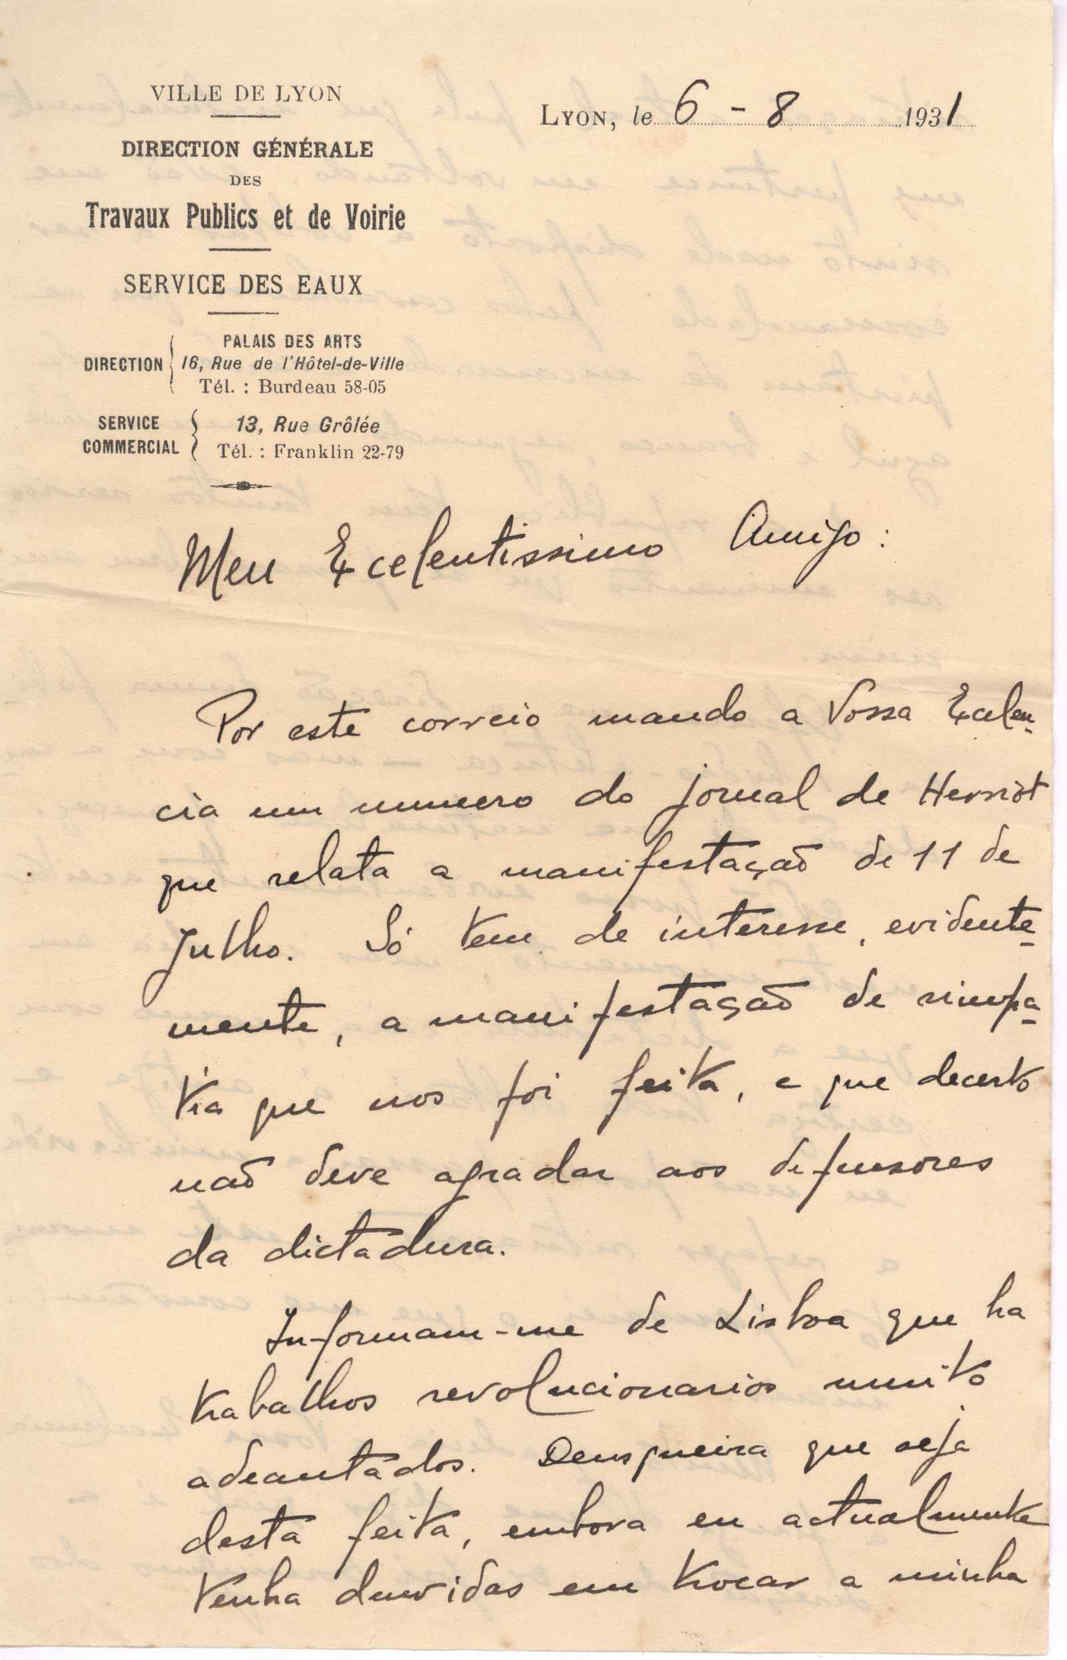 VILLE DE LYON
DIRECTION GÉNÉRALE
DES
Travaux Publics et de Voirie
SERVICE DES EAUX
DIRECTION { PALAIS DES ARTS
16, Rue de l'Hôtel-de-Ville
Tél. : Burdeau 58-05
SERVICE COMMERCIAL { 13, Rue Grôlée
Tél. : Franklin 22-79
LYON, le 6 - 8 1931
Meu Excelentissimo Amigo :
Por este correio mando a Vossa Excelen-
cia um numero do jornal de Herriot
que relata a manifestação de 11 de
Julho. Só tem de interesse, evidente-
mente, a manifestação de simpa-
tia que nos foi feita, e que decerto
não deve agradar aos defensores
da dictadura.
Informam-me de Lisboa que ha
trabalhos revolucionarios muito
adeantados. Deus queira que seja
desta feita, embora eu actualmente
tenha duvidas em trocar a minha